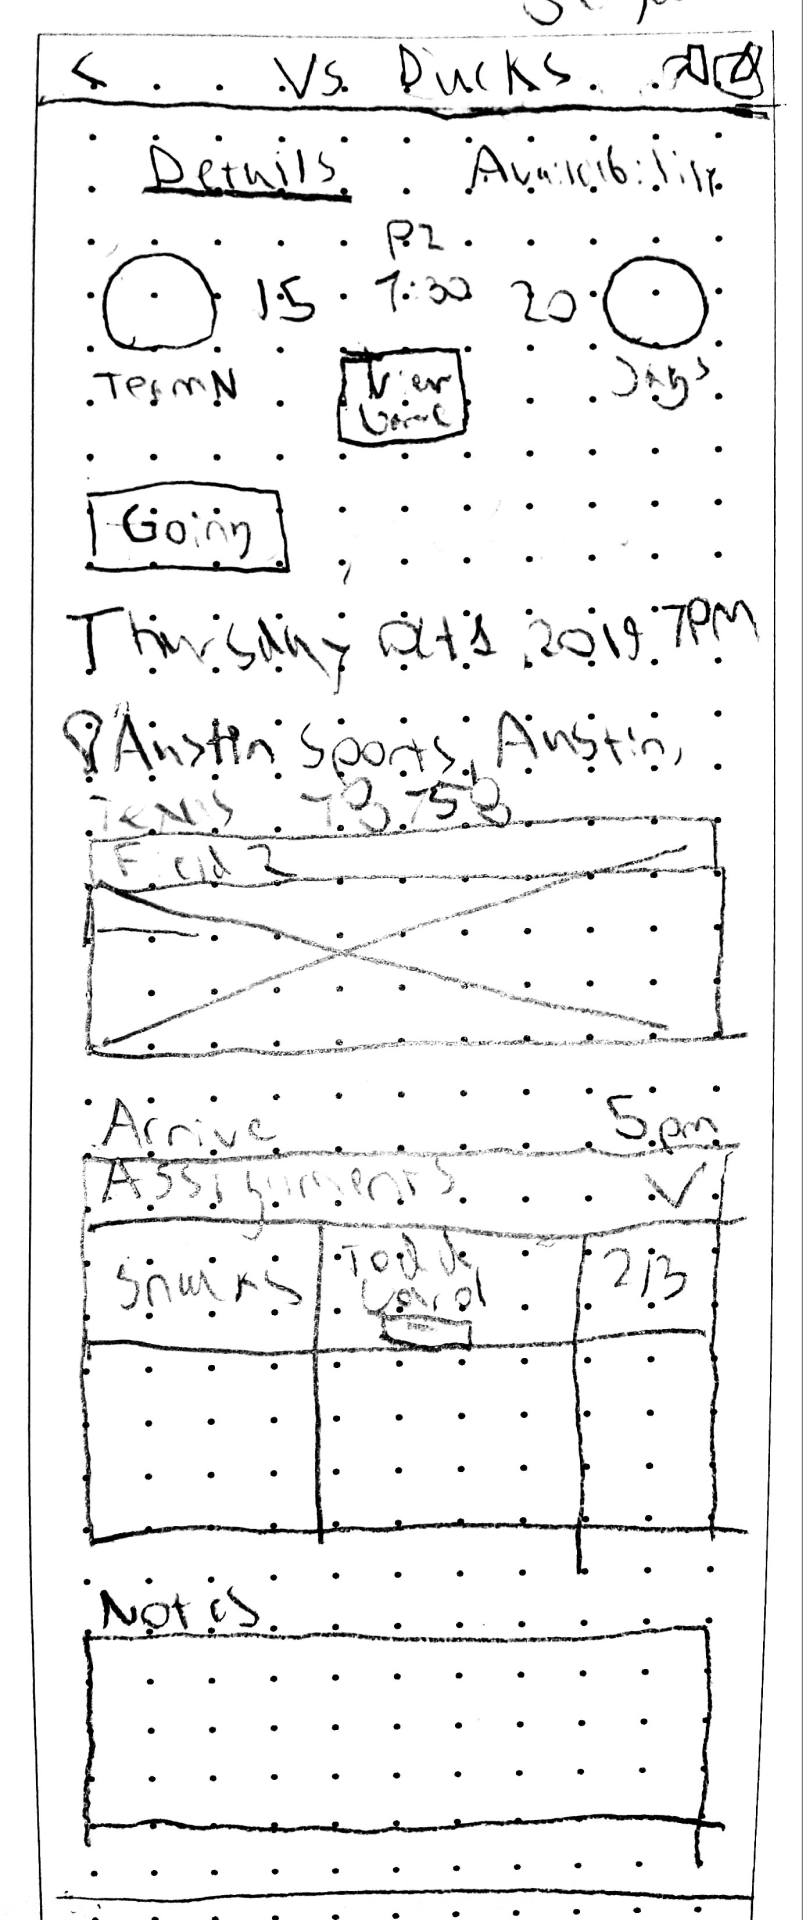 < Vs. Ducks
Details Availibility
P2
15 7:30 20
TeamN View
Going
Thursday Oct 1, 2019 7PM
Austin Sports, Austin,
Texas 78758
Field 2
Arrive 5pm
Assignments
Snacks 2/3
Notes